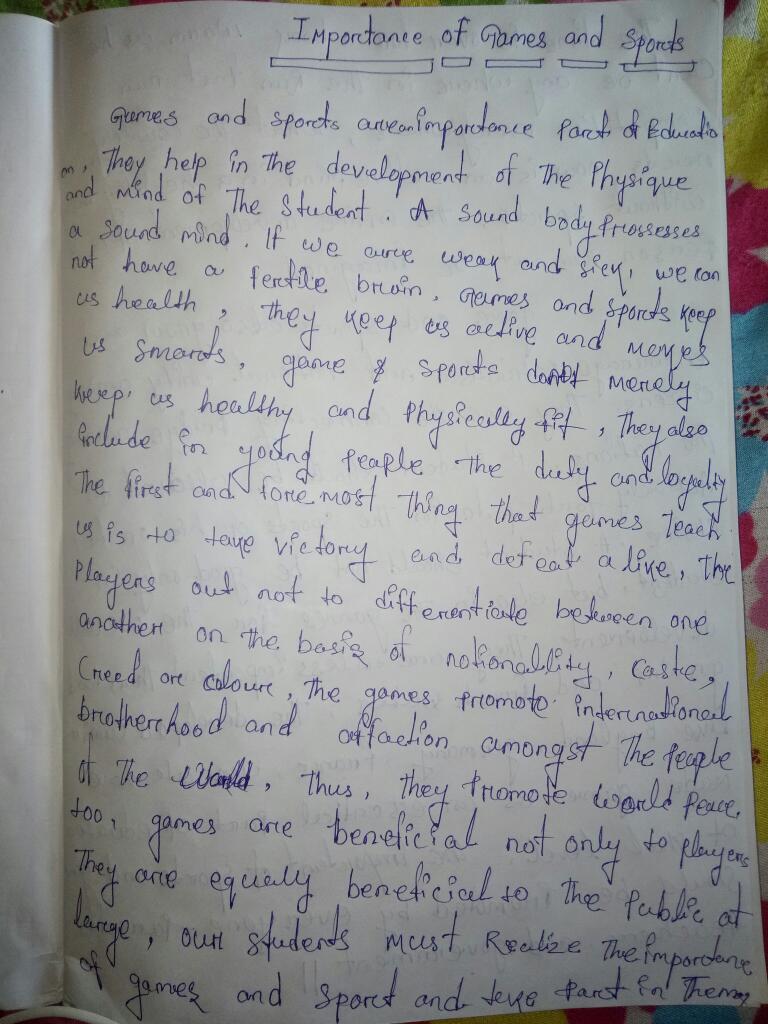 Importance of Games and Sports
Games and sports are an importance Part of Educatio
n, They help in the development of the Physique
and mind of The Student. A sound body Prossesses
a sound mind. If we are weak and sick, we can
not have a fertile brain. Games and sports keep
us health, they keep us active and makes
us smarts, game & sports dont merely
keep us healthy and Physically fit, They also
include in young people the duty and loyality
The first and fore most thing that games teach
us is to take victory and defeat alike, the
Players out not to differenticate between one
another on the basis of nationallity, caste,
Creed or colour, The games promote international
brotherhood and affaction amongst the people
of the World, Thus, they Promote world Peace,
too, games are beneficial not only to players
They are equaly beneficial to the Public at
large, our students must Realize The importance
of games and sport and take Part in Them